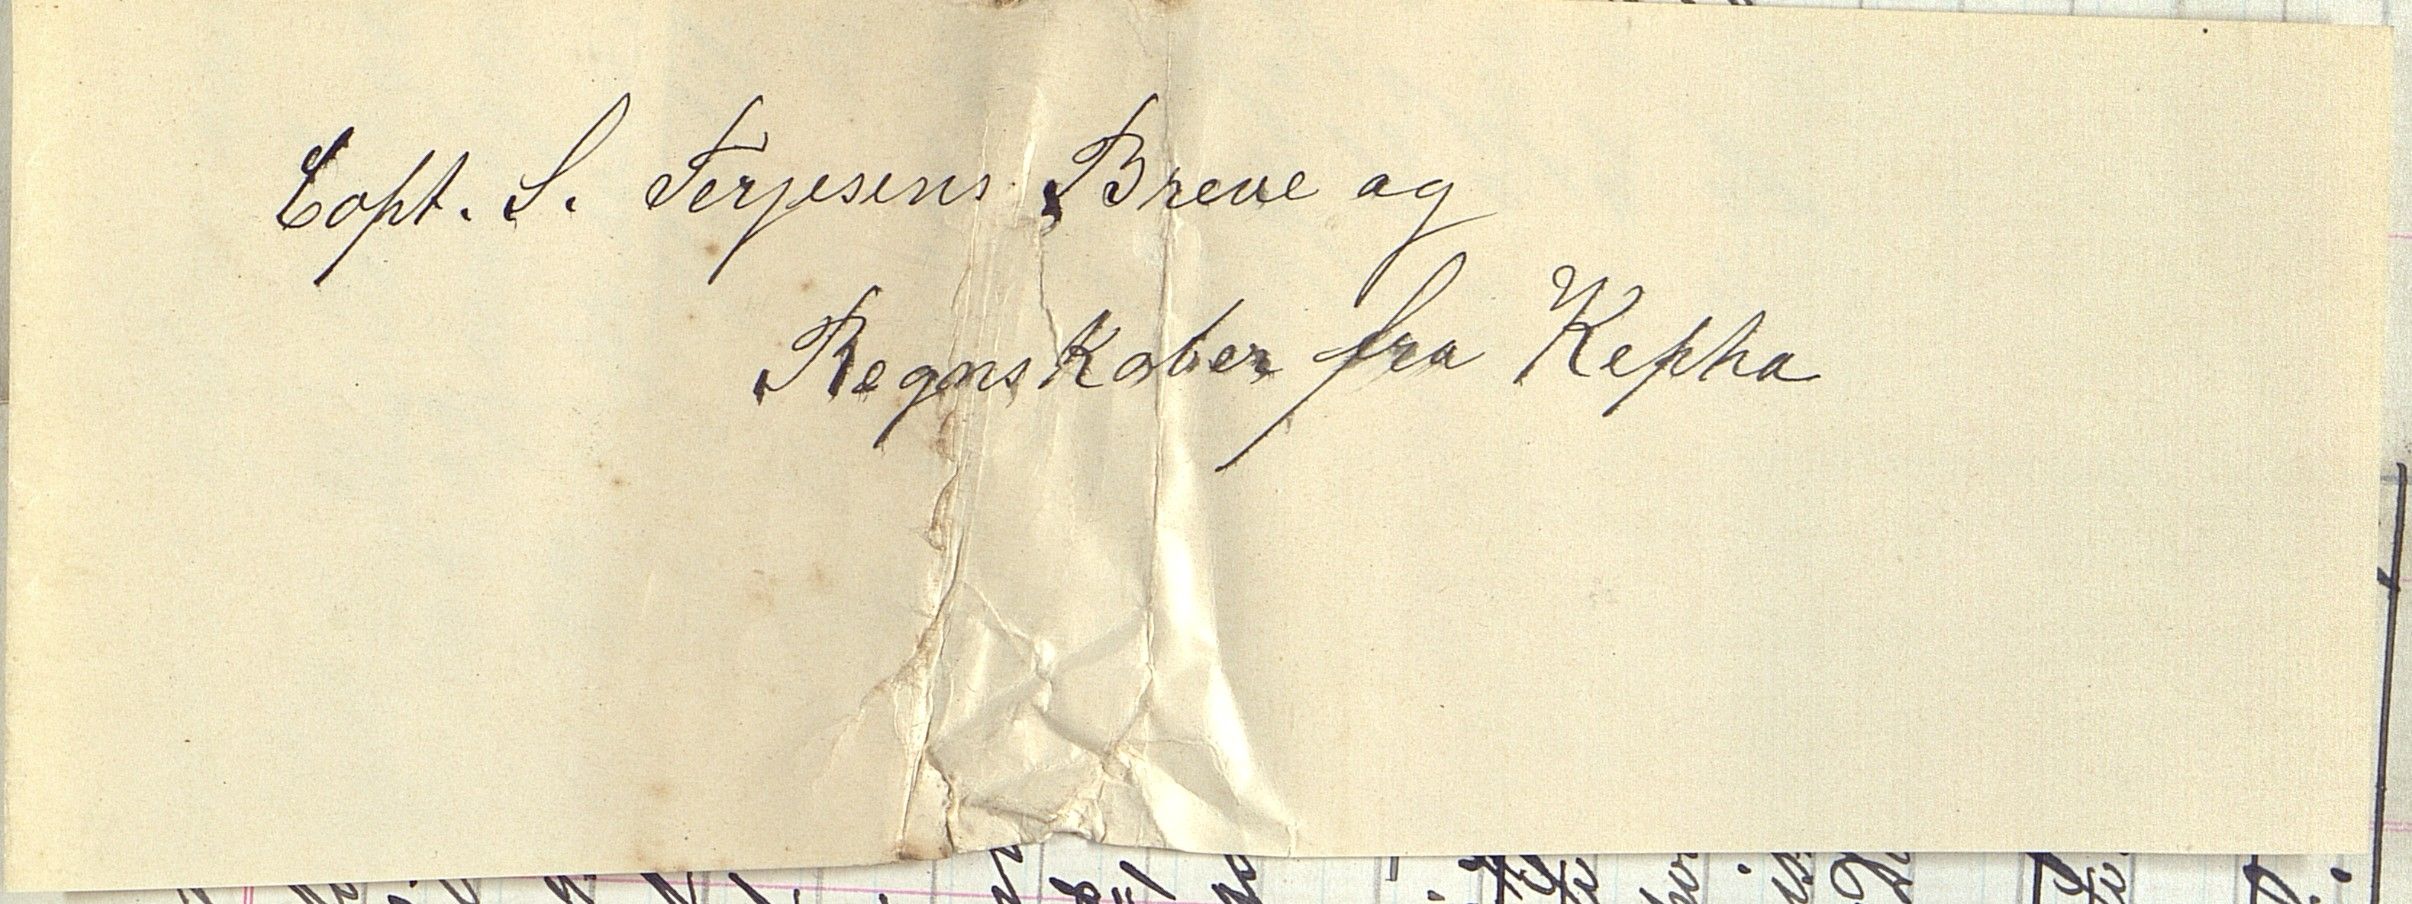 Capt. S. Terjesens Breve og
Regnskaber fra Kepha